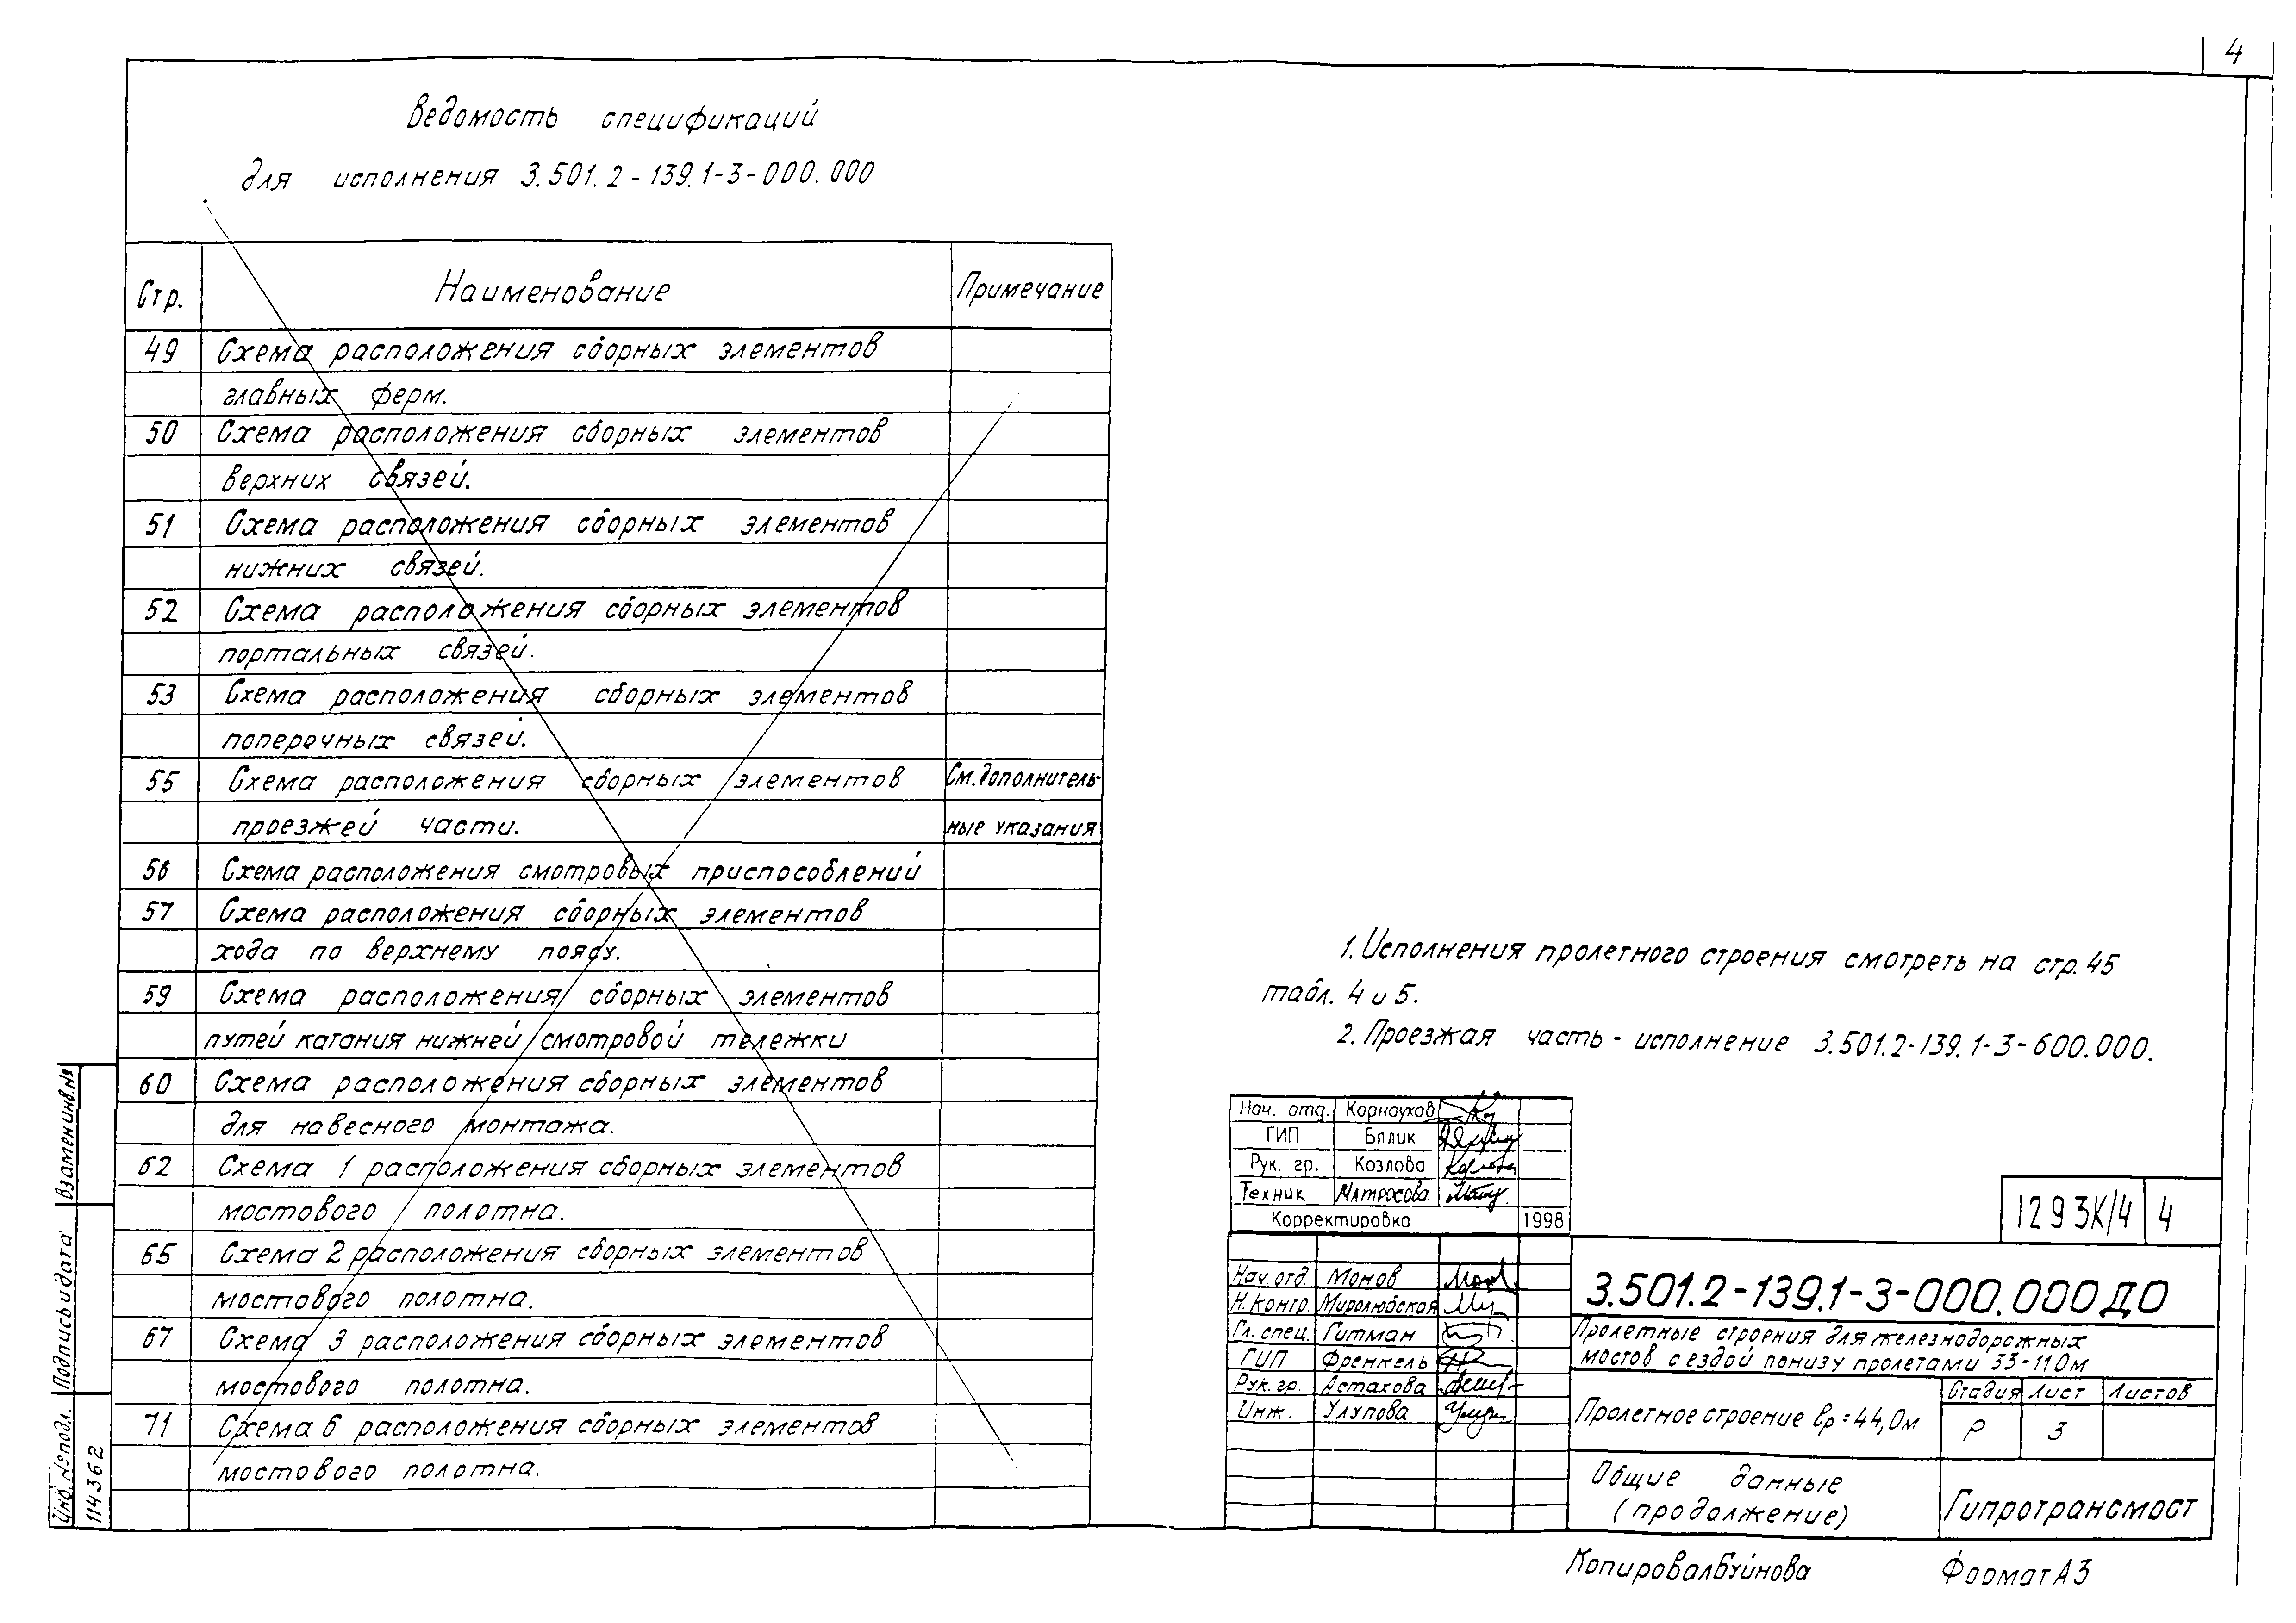 4
Ведомость спецификаций
для исполнения 3.501.2-139.1-3-000.000
Стр. Наименование Примечание
49 Схема расположения сборных элементов
главных ферм.
50 Схема расположения сборных элементов
верхних связей.
51 Схема расположения сборных элементов
нижних связей.
52 Схема расположения сборных элементов
портальных связей.
53 Схема расположения сборных элементов
поперечных связей.
55 Схема расположения сборных элементов См.дополнитель-
проезжей части. ные указания
56 Схема расположения смотровых приспособлений
57 Схема расположения сборных элементов
хода по верхнему поясу.
59 Схема расположения сборных элементов
путей катания нижней смотровой тележки
60 Схема расположения сборных элементов
для навесного монтажа.
62 Схема 1 расположения сборных элементов
мостового полотна.
65 Схема 2 расположения сборных элементов
мостового полотна.
67 Схема 3 расположения сборных элементов
мостового полотна.
71 Схема 6 расположения сборных элементов
мостового полотна.
1. Исполнения пролетного строения смотреть на стр. 45
табл. 4 и 5.
2. Проезжая часть - исполнение 3.501.2-139.1-3-600.000.
Нач. отд. Корноухов
ГИП Бялик
Рук. гр. Козлова
Техник Матросова
Корректировка 1998
1293К/4 4
Нач. отд. Монов
Н. контр. Миролюбская
Гл. спец. Гитман
ГИП Френкель
Рук. гр. Астахова
Инж. Улупова
3.501.2-139.1-3-000.000ДО
Пролетные строения для железнодорожных
мостов с ездой понизу пролетами 33-110м
Пролетное строение lр=44,0м
Стадия Лист Листов
Р 3
Общие данные
(продолжение)
Гипротрансмост
Копировал Буйнова Формат А3
Взамен инв.№
Подпись и дата
Инв. № подл.
114362